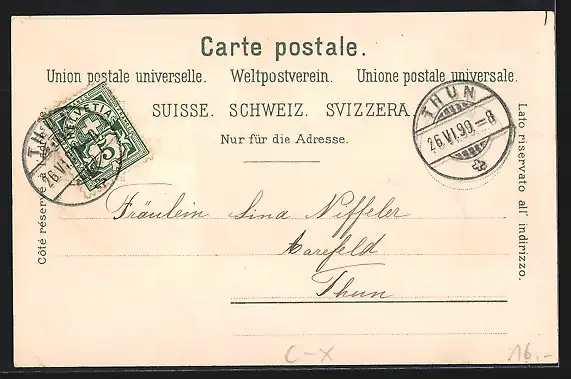 Carte postale.
Union postale universelle. Weltpostverein. Unione postale universale.
SUISSE. SCHWEIZ. SVIZZERA
Nur für die Adresse.
Côté réservé à
Lato riservato all' indirizzo.
HELVETIA
5
THUN
26.VI.99.-8
26.VI.
Fräulein Lina Niffeler
Aarefeld
Thun
C-X
16.-